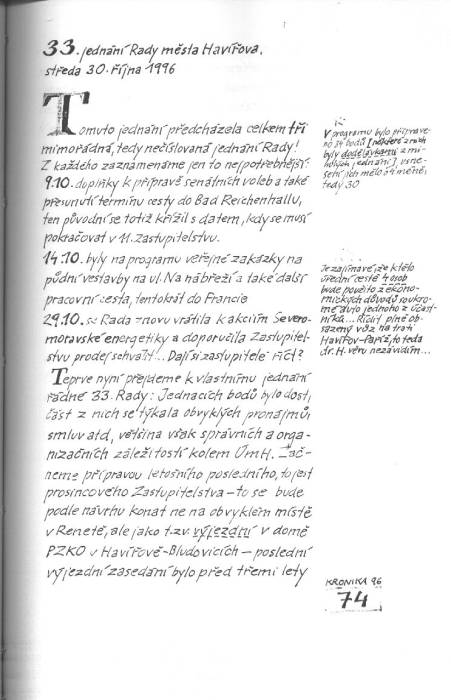 33. jednání Rady města Havířova,
středa 30. října 1996
Tomuto jednání předcházela celkem tři
mimořádná, tedy nečíslovaná jednání Rady!
Z každého zaznamenáme jen to nejpotřebnější:
9.10. doplňky k přípravě senátních voleb a také
přesunutí termínu cesty do Bad Reichenhallu,
ten původní se totiž křížil s datem, kdy se musí
pokračovat v 11. Zastupitelstvu.
14.10. byly na programu veřejné zakázky na
půdní vestavby na ul. Na nábřeží a také další
pracovní cesta, tentokrát do Francie
29.10. se Rada znovu vrátila k akciím Severo-
moravské energetiky a doporučila Zastupitel-
stvu prodej schválit... Dají si zastupitelé říct?
Teprve nyní přejdeme k vlastnímu jednání
řádné 33. Rady: Jednacích bodů bylo dost,
část z nich se týkala obvyklých pronájmů,
smluv atd, většina však správních a orga-
nizačních záležitostí kolem ÚmH. Zač-
neme přípravou letošního posledního, to jest
prosincového Zastupitelstva – to se bude
podle návrhu konat ne na obvyklém místě
v Renetě, ale jako t.zv. výjezdní v domě
PZKO v Havířově-Bludovicích – poslední
výjezdní zasedání bylo před třemi lety
V programu bylo připrave-
no 34 bodů [některé z nich
byly dodělávkami z mi-
nulých jednání], usne-
sení jich mělo o 4 méně,
tedy 30
Je zajímavé, že k této
úřední cestě 4 osob
bude použito z ekono-
mických důvodů soukro-
mé auto jednoho z účast-
níků... Řídit plně ob-
sazený vůz na trati
Havířov-Paříž, to teda
dr. H. věru nezávidím...
KRONIKA 96
74